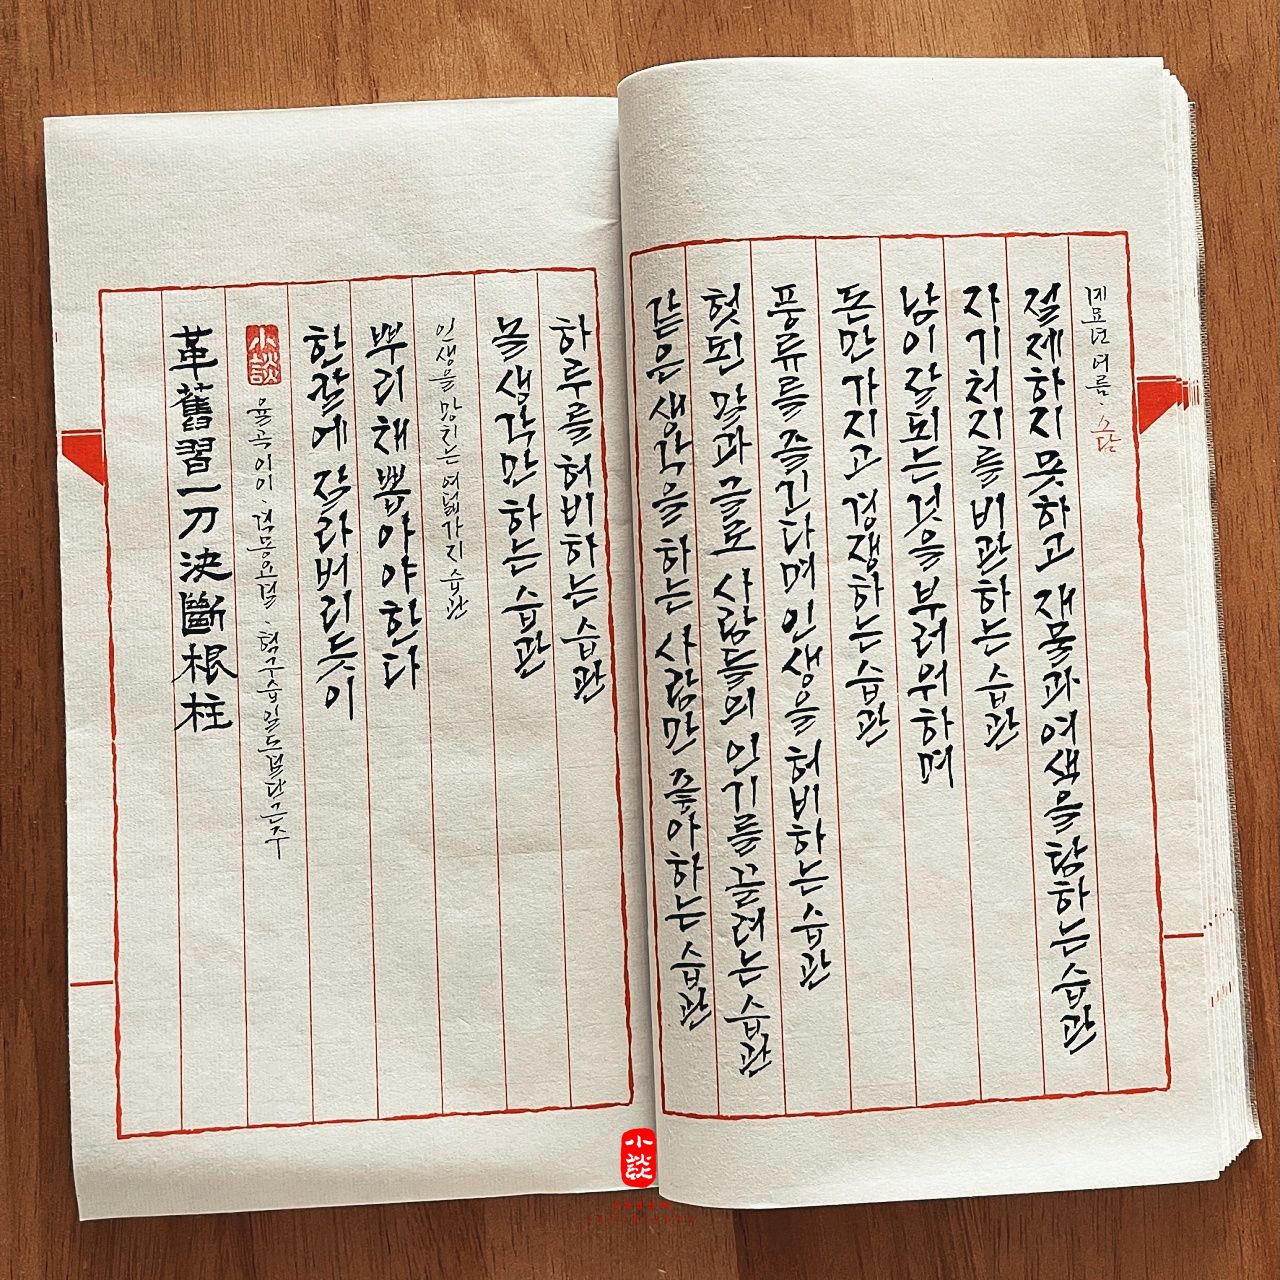 革舊習一刀決斷根柱
小談
율곡 이이 . 격몽요결 . 혁구습일도결단근주
한칼에 잘라버리듯이
뿌리채 뽑아야한다
인생을 망치는 여덟가지 습관
놀 생각만 하는 습관
하루를 허비하는 습관
같은 생각을 하는 사람만 좋아하는 습관
헛된 말과 글로 사람들의 인기를 끌려는 습관
풍류를 즐긴다며 인생을 허비하는 습관
돈만 가지고 경쟁하는 습관
남이 잘되는것을 부러워하며
자기 처지를 비관하는 습관
절제하지 못하고 재물과 여색을 탐하는 습관
계묘년 여름 . 소담
小談